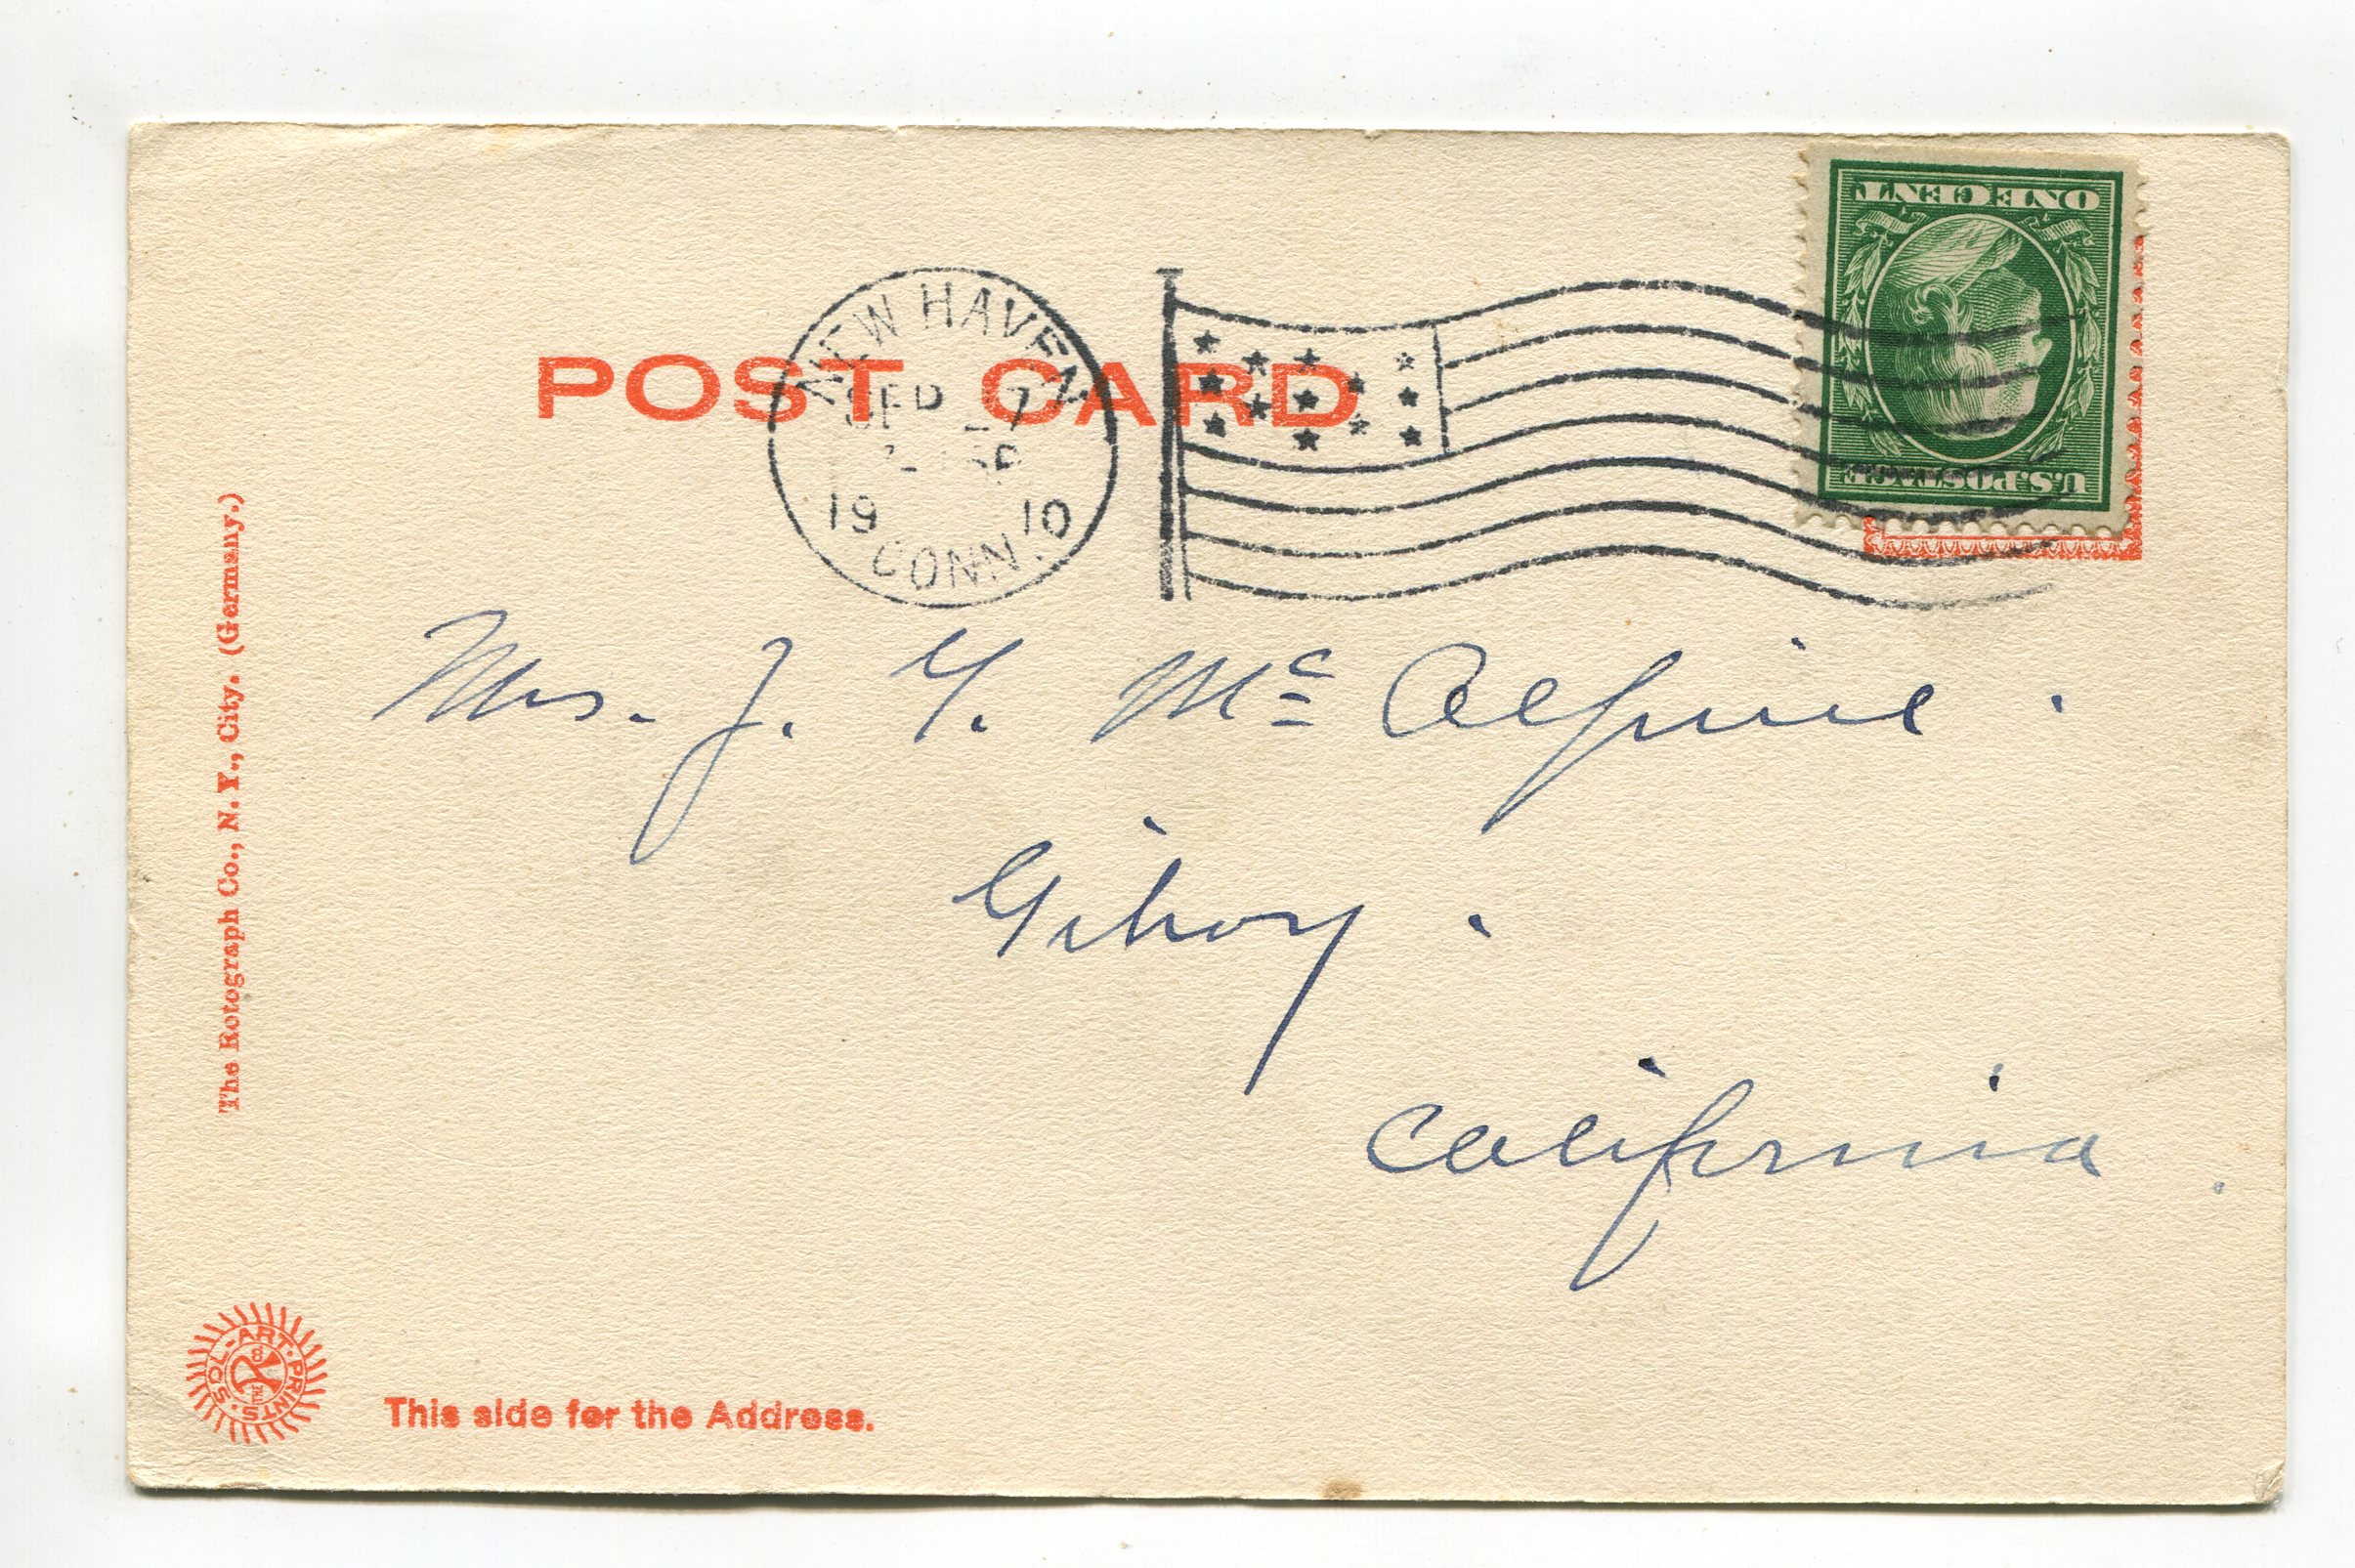 POST CARD
NEW HAVEN
SEP 27
19 10
CONN.
ONE CENT
U.S. POSTAGE
Mrs. J. Y. Mc Alpine.
Gilroy.
California.
The Rotograph Co., N. Y., City. (Germany.)
SOL-ART·PRINTS·
THE
This side for the Address.